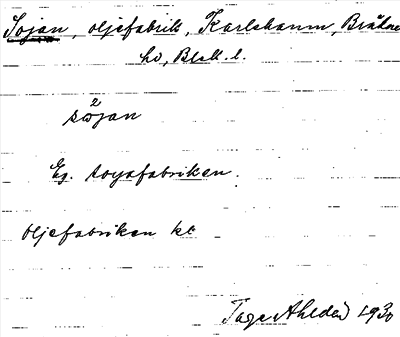 Sojan, oljefabrik, Karlshamn, Bräkne
hd, Blek. l.
2
såjan
Eg. soyafabriken.
Oljefabriken kt
Tage Ahldén 1930